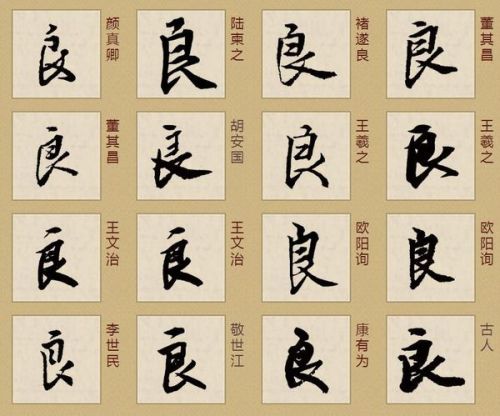 良 颜真卿
良 陆柬之
良 褚遂良
良 董其昌
良 董其昌
良 胡安国
良 王羲之
良 王羲之
良 王文治
良 王文治
良 欧阳询
良 欧阳询
良 李世民
良 敬世江
良 康有为
良 古人